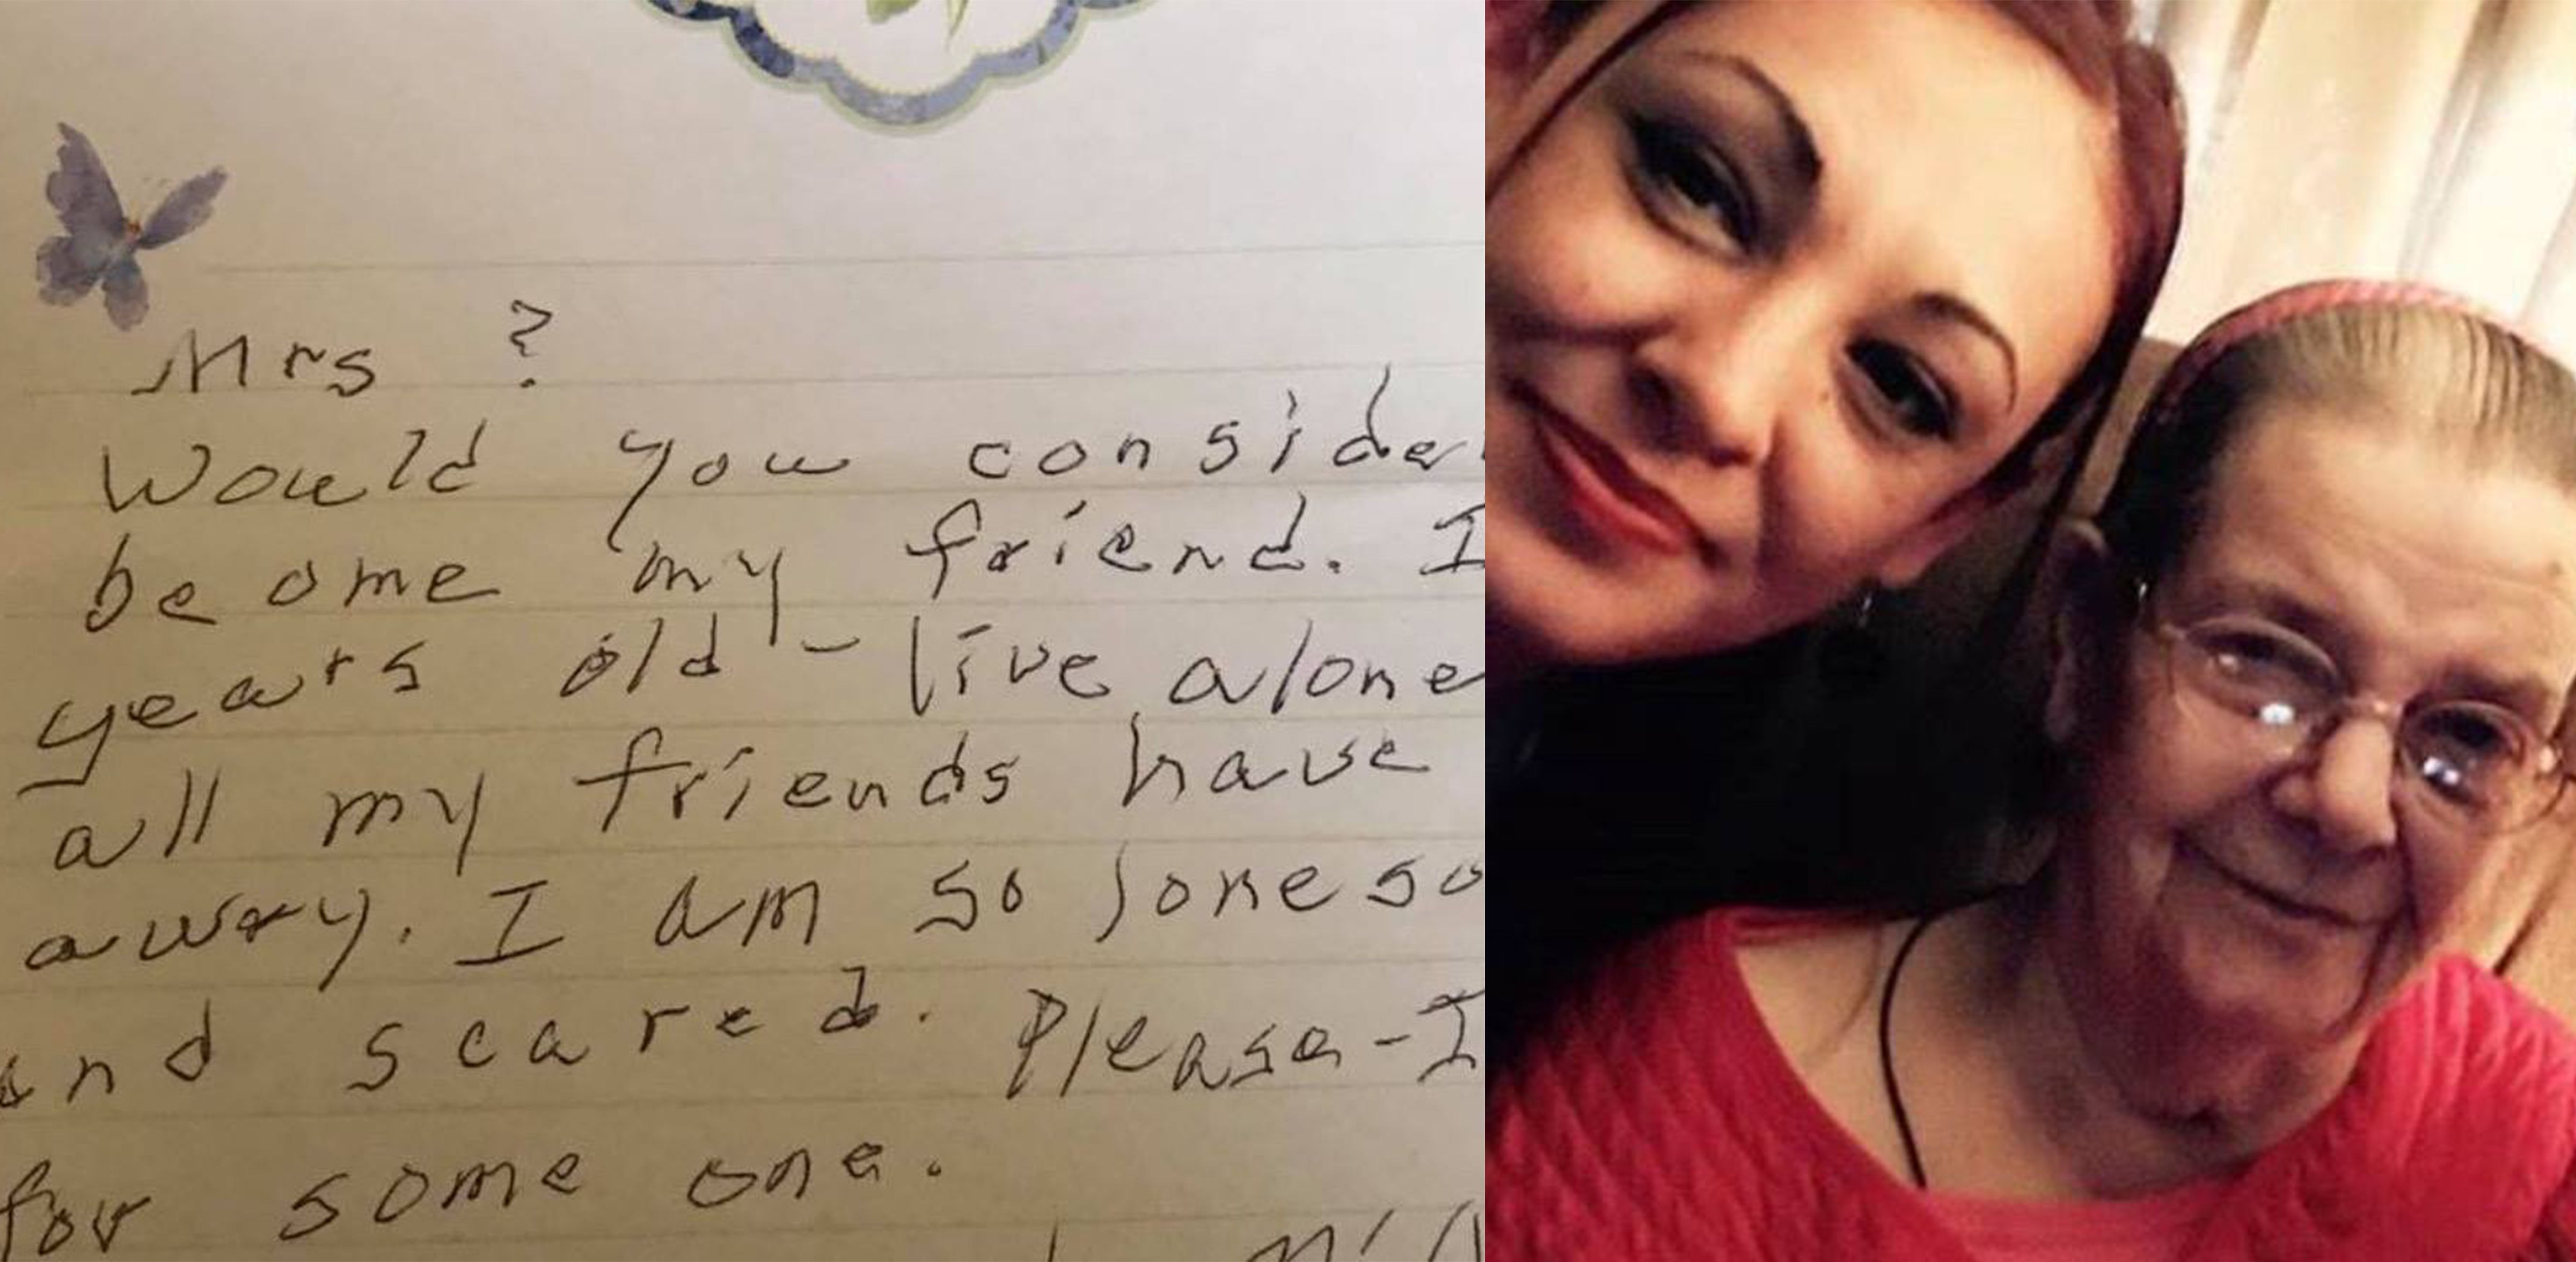 Mrs ?
Would you consider
be ome my friend. I
years old - live alone
all my friends have
away. I am so loneso
and scared. Please - I
for some one.